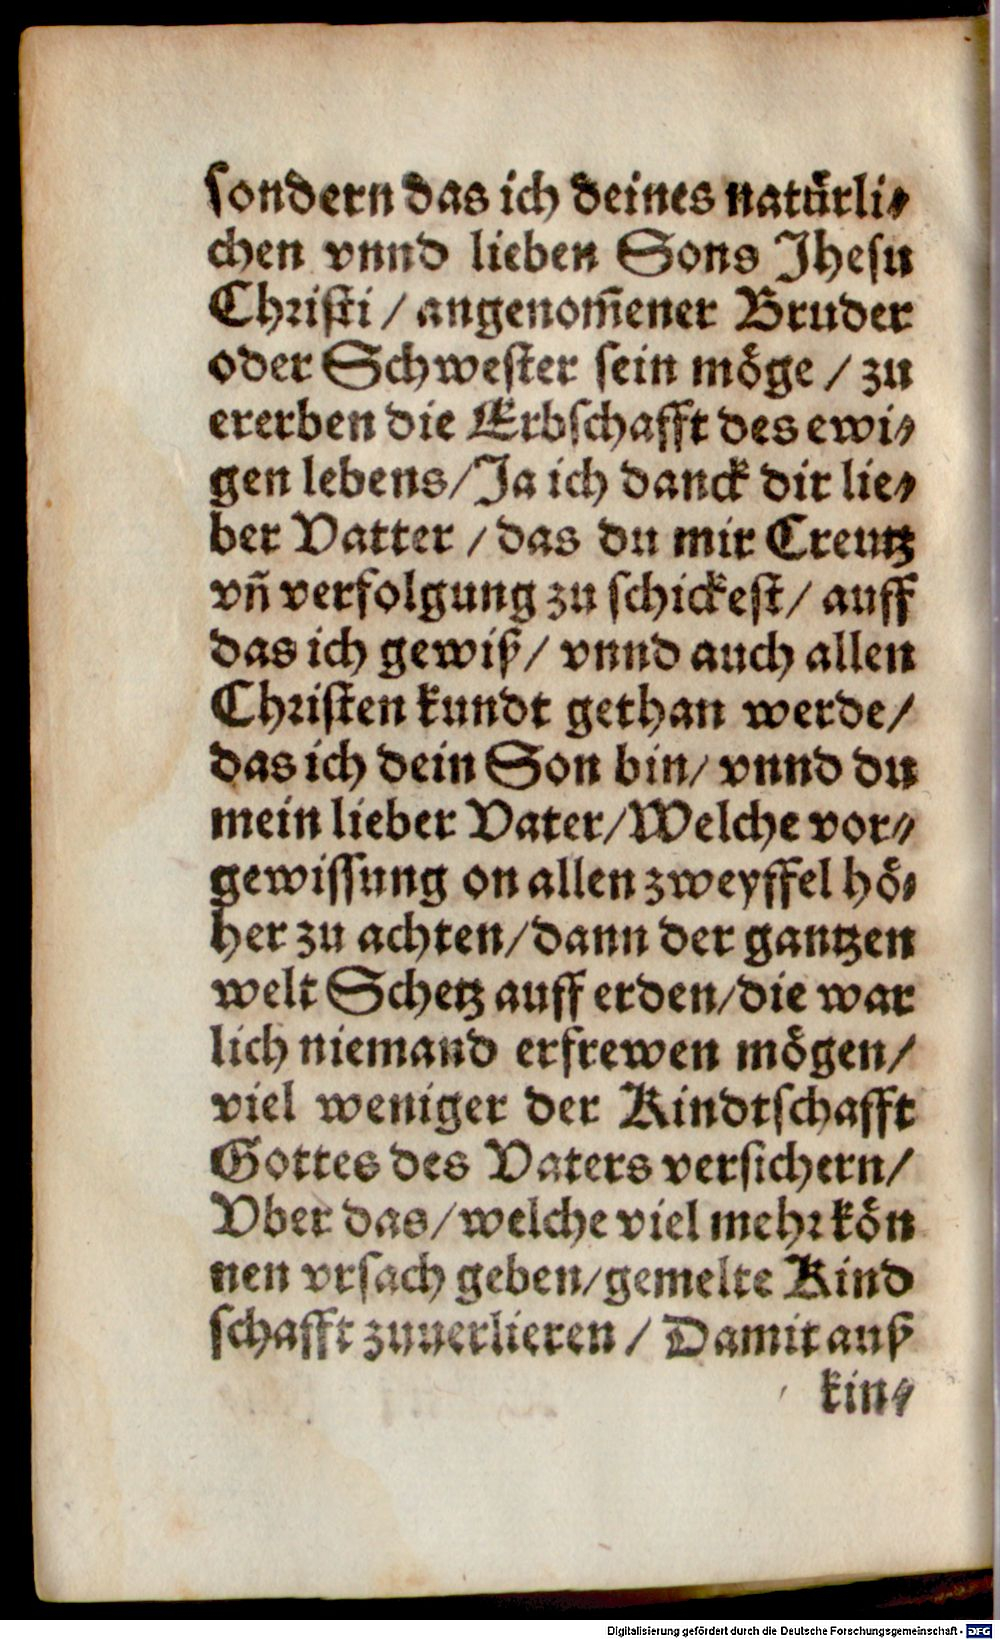 sondern das ich deines natürli⸗
chen vnnd lieben Sons Jhesu
Christi / angenom̃ener Bruder
oder Schwester sein möge / zu
ererben die Erbschafft des ewi⸗
gen lebens / Ja ich danck dir lie⸗
ber Vatter / das du mir Creutz
vñ verfolgung zu schickest / auff
das ich gewiß / vnnd auch allen
Christen kundt gethan werde /
das ich dein Son bin / vnnd du
mein lieber Vater / Welche vor⸗
gewissung on allen zweyffel hö⸗
her zu achten / dann der gantzen
welt Schetz auff erden / die war
lich niemand erfrewen mögen /
viel weniger der Kindtschafft
Gottes des Vaters versichern /
Vber das / welche viel mehr kön
nen vrsach geben / gemelte Kind
schafft zuuerlieren / Damit auß
kin⸗
Digitalisierung gefördert durch die Deutsche Forschungsgemeinschaft - DFG